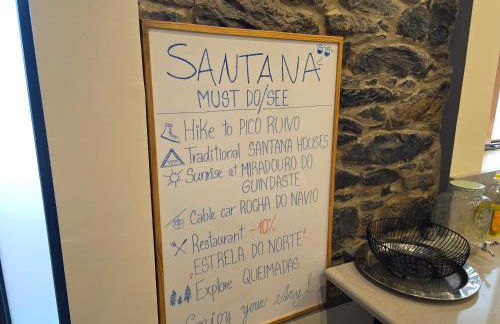 SANTANA
MUST DO/SEE
Hike to PICO RUIVO
Traditional SANTANA HOUSES
Sunrise at MIRADOURO DO
GUINDASTE
Cable car ROCHA DO NAVIO
Restaurant -10%
"ESTRELA DO NORTE"
Explore QUEIMADAS
Enjoy your stay!